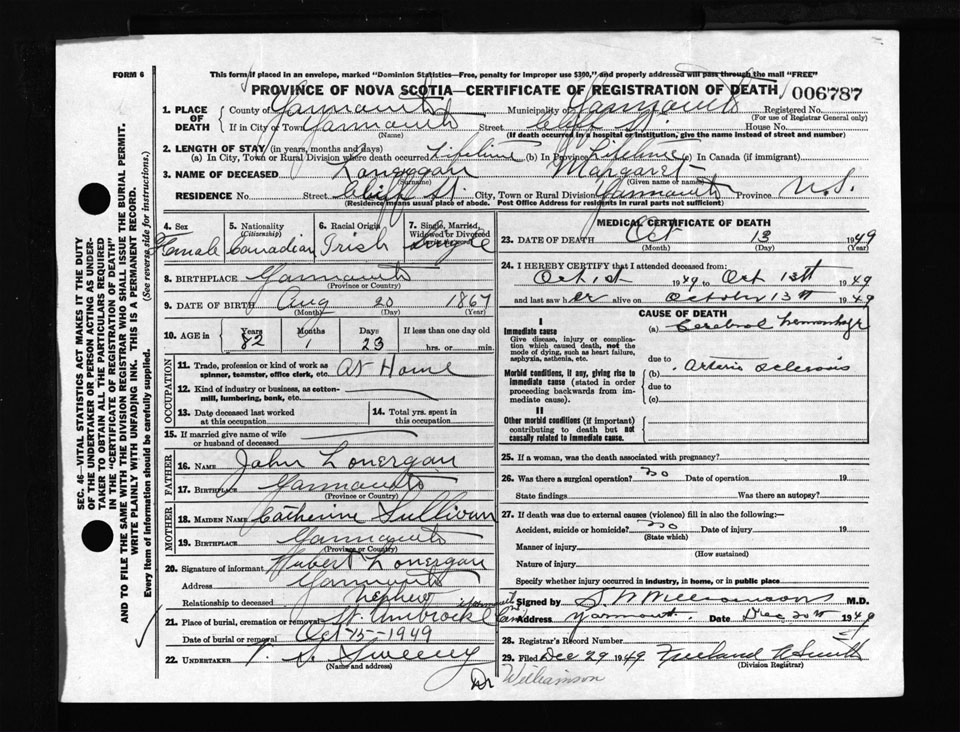 FORM 6
This form if placed in an envelope, marked "Dominion Statistics—Free, penalty for improper use $300," and properly addressed will pass through the mail "FREE"
PROVINCE OF NOVA SCOTIA—CERTIFICATE OF REGISTRATION OF DEATH
006787
1. PLACE OF DEATH
County of Yarmouth Municipality of Yarmouth Registered No.
(For use of Registrar General only)
If in City or Town Yarmouth Street Cliff St. House No.
(Name) (If death occurred in a hospital or institution, give the name instead of street and number)
2. LENGTH OF STAY (in years, months and days)
(a) In City, Town or Rural Division where death occurred Lifetime (b) In Province Lifetime (c) In Canada (if immigrant)
3. NAME OF DECEASED Lonergan Margaret
(Surname) (Given name or names)
RESIDENCE No. Street Cliff St. City, Town or Rural Division Yarmouth Province N.S.
(Residence means usual place of abode. Post Office Address for residents in rural parts not sufficient)
4. Sex Female
5. Nationality (Citizenship) Canadian
6. Racial Origin Irish
7. Single, Married, Widowed or Divorced Single
8. BIRTHPLACE Yarmouth
(Province or Country)
9. DATE OF BIRTH Aug 20 1867
(Month) (Day) (Year)
10. AGE in Years 82 Months 1 Days 23 If less than one day old
hrs. or min.
OCCUPATION
11. Trade, profession or kind of work as spinner, teamster, office clerk, etc. At Home
12. Kind of industry or business, as cotton-mill, lumbering, bank, etc.
13. Date deceased last worked at this occupation
14. Total yrs. spent in this occupation
15. If married give name of wife or husband of deceased
FATHER
16. NAME John Lonergan
17. BIRTHPLACE Yarmouth
(Province or Country)
MOTHER
18. MAIDEN NAME Catherine Sullivan
19. BIRTHPLACE Yarmouth
(Province or Country)
20. Signature of informant Hubert Lonergan
Address Yarmouth
Relationship to deceased Nephew
21. Place of burial, cremation or removal St. Ambrock Cem Yarmouth
Date of burial or removal Oct 15 - 1949
22. UNDERTAKER V. S. Sweeny
(Name and address)
Dr Williamson
MEDICAL CERTIFICATE OF DEATH
23. DATE OF DEATH Oct 13 1949
(Month) (Day) (Year)
24. I HEREBY CERTIFY that I attended deceased from:
Oct 1st 1949 to Oct 13th 1949
and last saw her alive on October 13th 1949
CAUSE OF DEATH
I
Immediate cause
Give disease, injury or complication which caused death, not the mode of dying, such as heart failure, asphyxia, asthenia, etc.
(a) Cerebral hemorrhage
due to
Morbid conditions, if any, giving rise to immediate cause (stated in order proceeding backwards from immediate cause).
(b) Arterio sclerosis
due to
(c)
II
Other morbid conditions (if important) contributing to death but not causally related to immediate cause.
25. If a woman, was the death associated with pregnancy?
26. Was there a surgical operation? no Date of operation 19
State findings Was there an autopsy?
27. If death was due to external causes (violence) fill in also the following:—
Accident, suicide or homicide? no Date of injury 19
(State which)
Manner of injury
(How sustained)
Nature of injury
Specify whether injury occurred in industry, in home, or in public place
Signed by S. W. Williamson M.D.
Address Yarmouth. Date Dec 20th 1949
28. Registrar's Record Number
29. Filed Dec 29 1949 Smith
(Division Registrar)
SEC. 46—VITAL STATISTICS ACT MAKES IT THE DUTY
OF THE UNDERTAKER OR PERSON ACTING AS UNDERTAKER
TO OBTAIN ALL THE PARTICULARS REQUIRED
IN THE "CERTIFICATE OF REGISTRATION OF DEATH"
AND TO FILE THE SAME WITH THE DIVISION REGISTRAR WHO SHALL ISSUE THE BURIAL PERMIT.
WRITE PLAINLY WITH UNFADING INK. THIS IS A PERMANENT RECORD.
Every item of information should be carefully supplied. (See reverse side for instructions.)